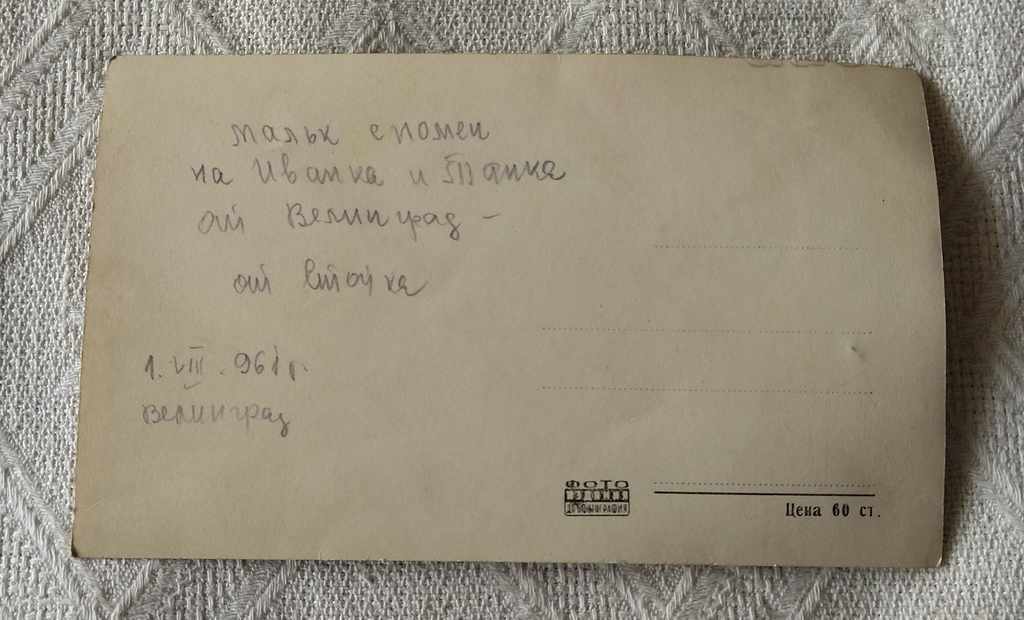 малък спомен
на Иванка и Танка
от Велинград -
от
1. VIII. 961 г.
Велинград
ФОТО
Цена 60 ст.